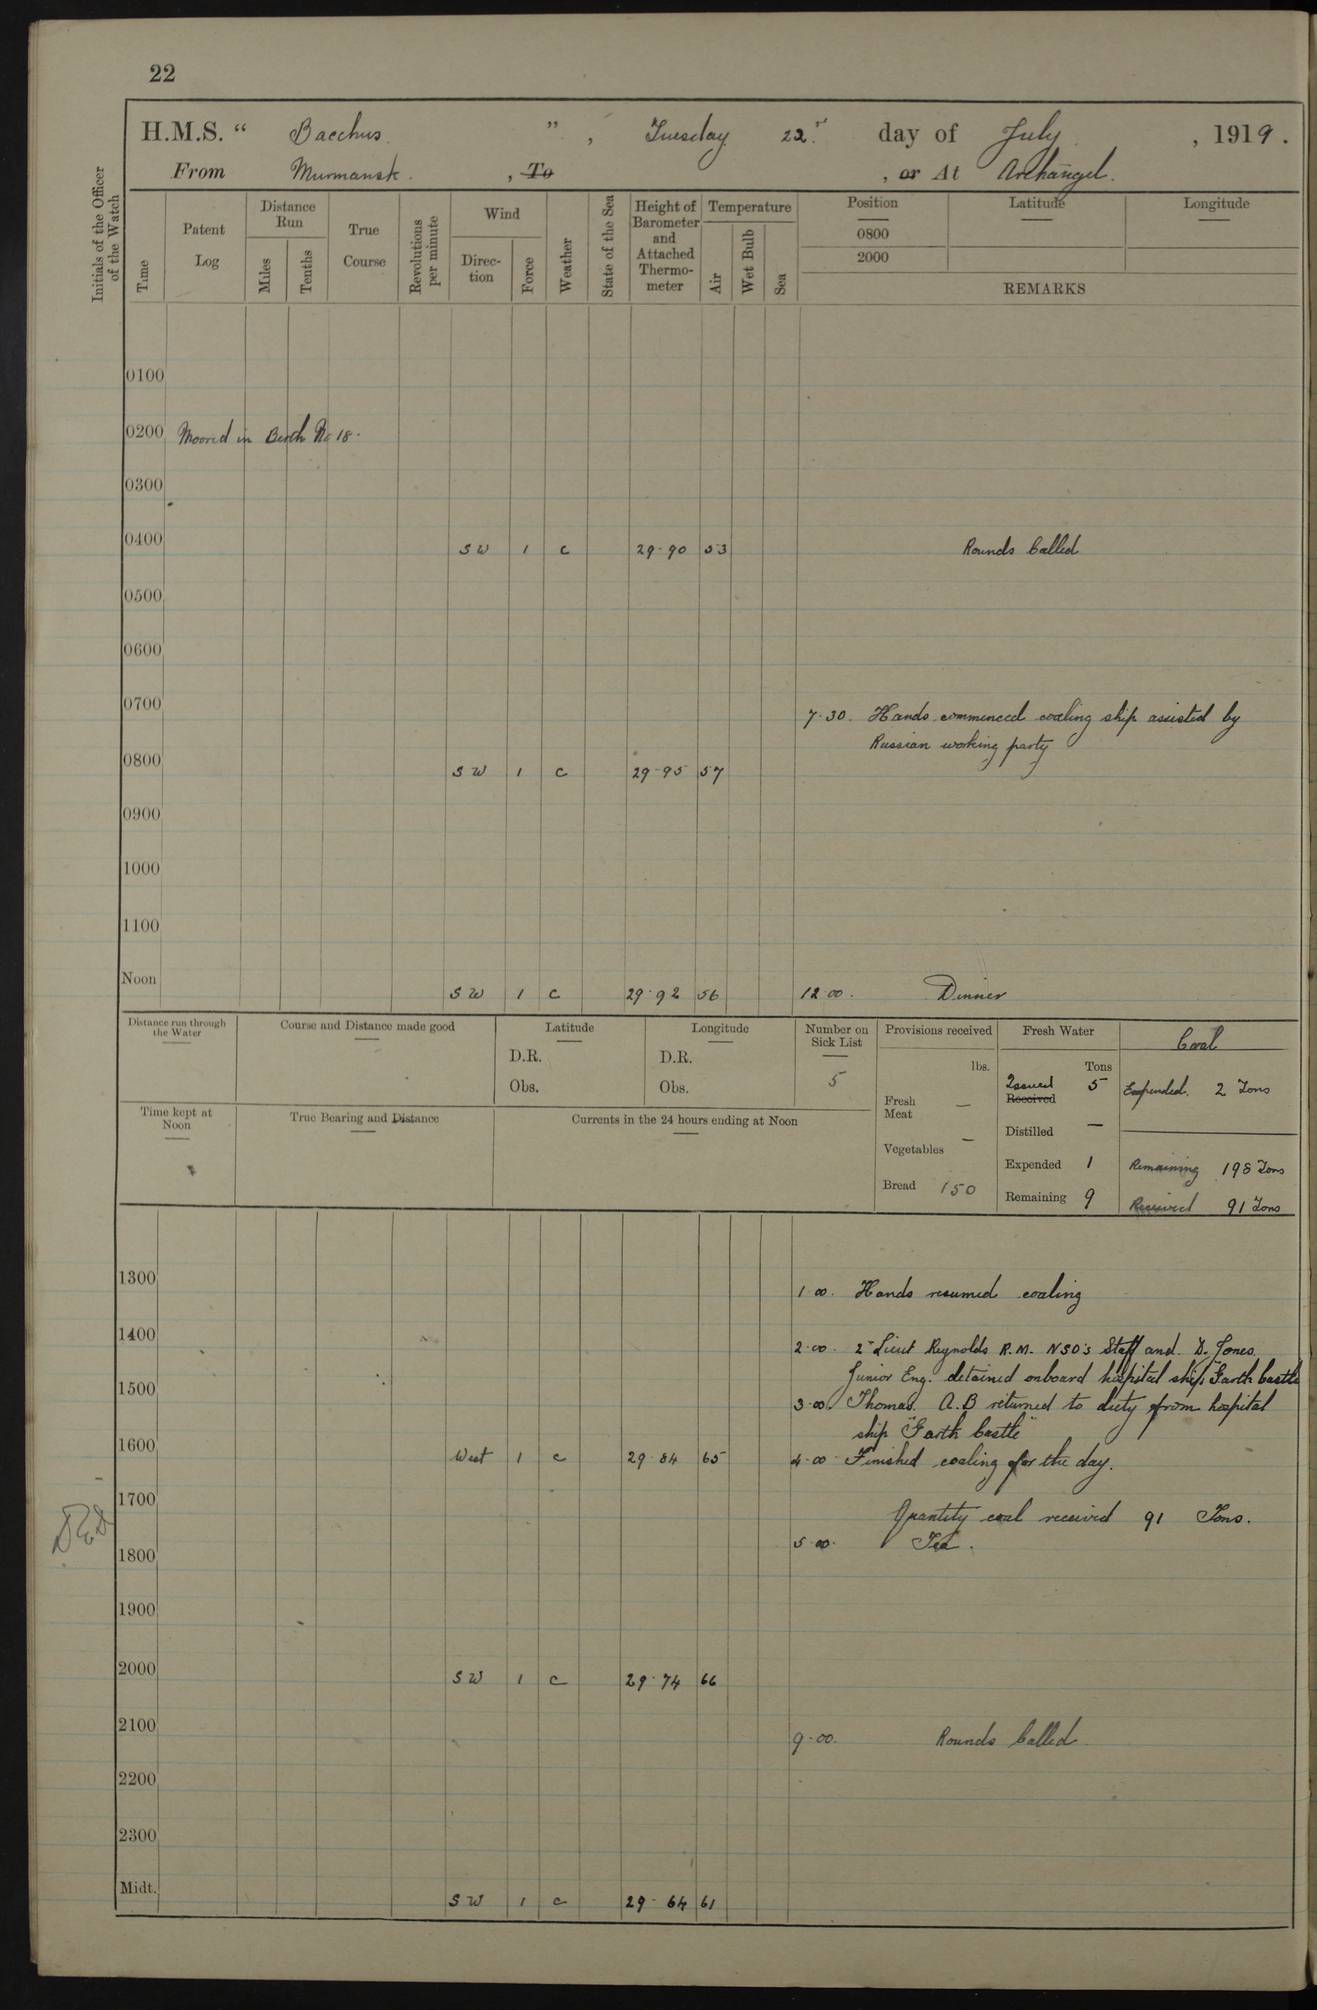 22
H.M.S. “ Bacchus ” , Tuesday 22nd day of July , 1919.
From Murmansk. , To , or At Archangel.
Initials of the Officer of the Watch
Time
Patent Log
Distance Run
Miles
Tenths
True Course
Revolutions per minute
Wind
Direc-tion
Force
Weather
State of the Sea
Height of Barometer and Attached Thermo-meter
Temperature
Air
Wet Bulb
Sea
Position
Latitude
Longitude
0800
2000
REMARKS
0100
0200 Moored in Berth No 18.
0300
0400 SW 1 c 29.90 53 Rounds Called
0500
0600
0700
7.30. Hands commenced coaling ship assisted by
Russian working party
0800 SW 1 c 29.95 57
0900
1000
1100
Noon SW 1 c 29.92 56 12.00. Dinner
Distance run through the Water
Course and Distance made good
Latitude
D.R.
Obs.
Longitude
D.R.
Obs.
Number on Sick List
5
Provisions received
lbs.
Fresh Meat —
Vegetables —
Bread 150
Fresh Water
Tons
Issued 5
Received
Distilled —
Expended 1
Remaining 9
Coal
Expended. 2 Tons
Remaining 198 Tons
Received 91 Tons
Time kept at Noon
True Bearing and Distance
Currents in the 24 hours ending at Noon
1300
1.00. Hands resumed coaling
1400
2.00. 2nd Lieut Reynolds R.M. NSO's Staff and D. Jones
Junior Eng. detained onboard hospital ship "Garth Castle
1500
3.00. Thomas. A.B returned to duty from hospital
ship "Garth Castle"
1600 West 1 c 29.84 65 4.00 Finished coaling for the day.
1700
Quantity coal received 91 Tons.
5.00. Tea.
1800
1900
2000 SW 1 c 29.74 66
2100
9.00. Rounds Called
2200
2300
Midt. SW 1 c 29.64 61